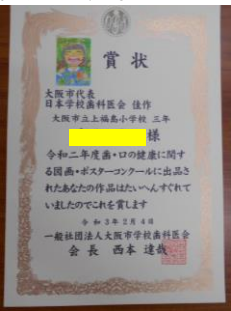 賞状
大阪市代表
日本学校歯科医会 佳作
大阪市立上福島小学校 三年
様
令和二年度歯・口の健康に関す
る図画・ポスターコンクールに出品さ
れたあなたの作品はたいへんすぐれて
いましたのでこれを賞します
令和3年2月4日
一般社団法人大阪市学校歯科医会
会長 西本達哉